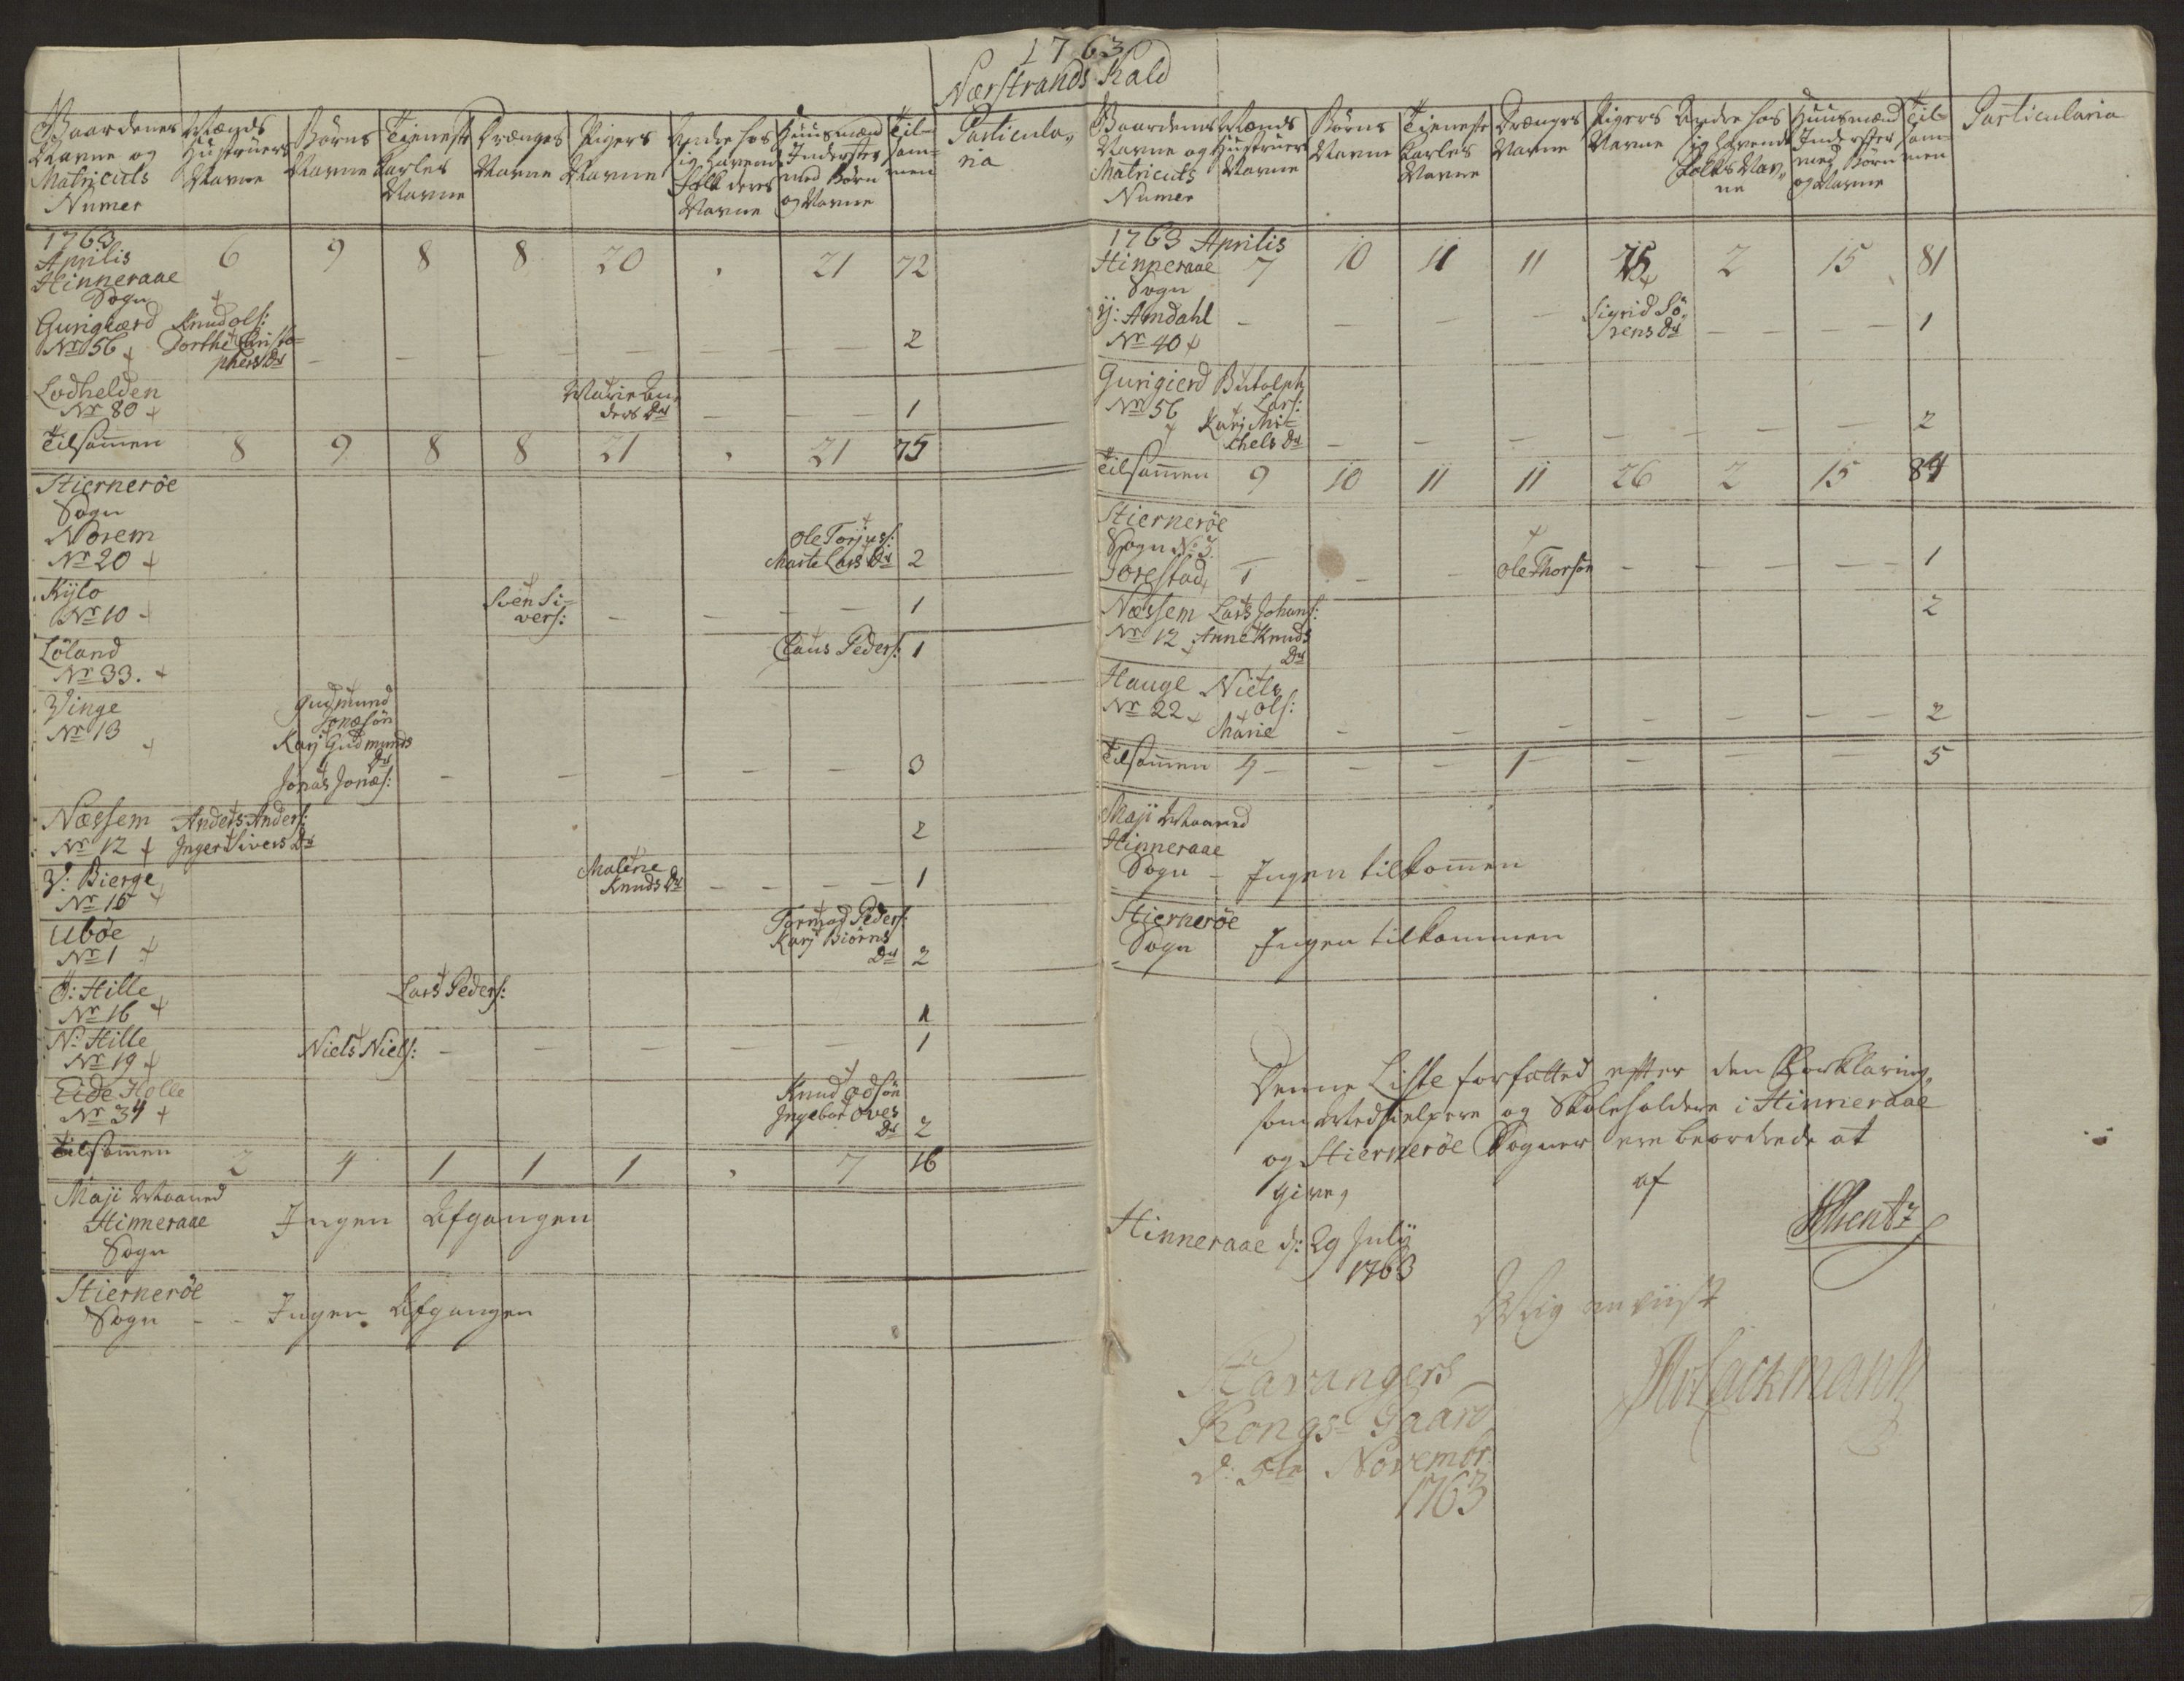 1763
Nærstrands Kald
Gaardenes Navne og Matriculs Numer | Mænds Hustruers Navne | Börns Navne | Tieneste Karles Navne | Drænges Navne | Pigers Navne | Andre hos sig havende folk deres Navne | Huusmænd Inderster med Börn og Navne | Tilsammen | Particularia
1763 Aprilis Hinneraae Sogn | 6 | 9 | 8 | 8 | 20 | . | 21 | 72
Gurigiærd No 56 | Knud Ols: Dorthe Christophersdr | – | – | – | – | – | – | 2
Lodhelden Nr 80 | Marie Andersdr | – | – | 1
Tilsam̄en | 8 | 9 | 8 | 8 | 21 | . | 21 | 75
Stierneröe Sogn
Norem Nr 20 | Ole Torjus: Marte Larsdr | 2
Kÿlo Nr 10 | Sven Sivers: | – | – | – | 1
Löland Nr 33. | Claus Peders: | 1
Vinge Nr 13 | Gudmund Jonæsön Karj Gudmundsdr Jonas Jonæs: | – | – | – | – | – | 3
Næssem Nr 12 | Anders Anders: Inger Siversdr | 2
V: Bierge Nr 15 | Malene Knudsdr | – | – | – | 1
Uböe Nr 1 | Tormod Peders: Karj Biörnsdr | 2
Hille Nr 16 | Lars Peders: | 1
N: Hille Nr 19 | Niels Niels: | – | – | – | – | – | 1
Eide Holle Nr 34 | Knud Ingebor Ovesdr | 2
Tilsam̄en | 2 | 4 | 1 | 1 | 1 | . | 7 | 16
Maji Maaned Hinneraae Sogn | Ingen Afgangen
Stierneröe Sogn – – Ingen Afgangen
Gaardenes Navne og Matriculs Numer | Mænds Hustruers Navne | Börns Navne | Tieneste Karles Navne | Drænges Navne | Pigers Navne | Andre hos sig havende Folks Navne | Huusmænd Inderster med Börn og Navne | Tilsammen | Particularia
1763 Aprilis Hinneraae Sogn | 7 | 10 | 11 | 11 | 25 | 2 | 15 | 81
ÿ: Amdahl Nr 40 | – | – | – | – | Sigrid Sörensdr | – | – | 1
Gurigierd Nr 56 | Butolph Lars: Karj Michelsdr | – | – | – | – | – | – | 2
Tilsam̄en | 9 | 10 | 11 | 11 | 26 | 2 | 15 | 84
Stierneröe Sogn No 3. Jorestad | – | – | Ole Thorsön | – | – | – | 1
Næssem Nr 12 | Lars Johans: Anne Knudsdr | 2
Hauge Nr 22 | Niels Ols: Marie | – | – | – | – | – | – | 2
Tilsam̄en | 4 | – | – | 1 | – | – | – | 5
Maji Maaned Hinneraae Sogn – Ingen tilkom̄en
Stierneröe Sogn Ingen tilkommen
Denne Liste forfatted efter den Forklaring,
som Medhielpere og Skoleholdere i Hinneraae
og Stierneröe Sogner ere beordrede at
give, af
Hinneraae d: 29 Julÿ
1763
Mig anviist
Stavangers
Kongs Gaard
d: 5te Novembr:
1763